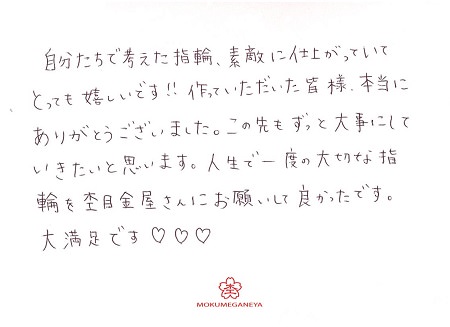 自分たちで考えた指輪、素敵に仕上がっていて
とっても嬉しいです!! 作っていただいた皆様、本当に
ありがとうございました。この先もずっと大事にして
いきたいと思います。人生で一度の大切な指
輪を杢目金屋さんにお願いして良かったです。
大満足です♡♡♡
MOKUMEGANEYA